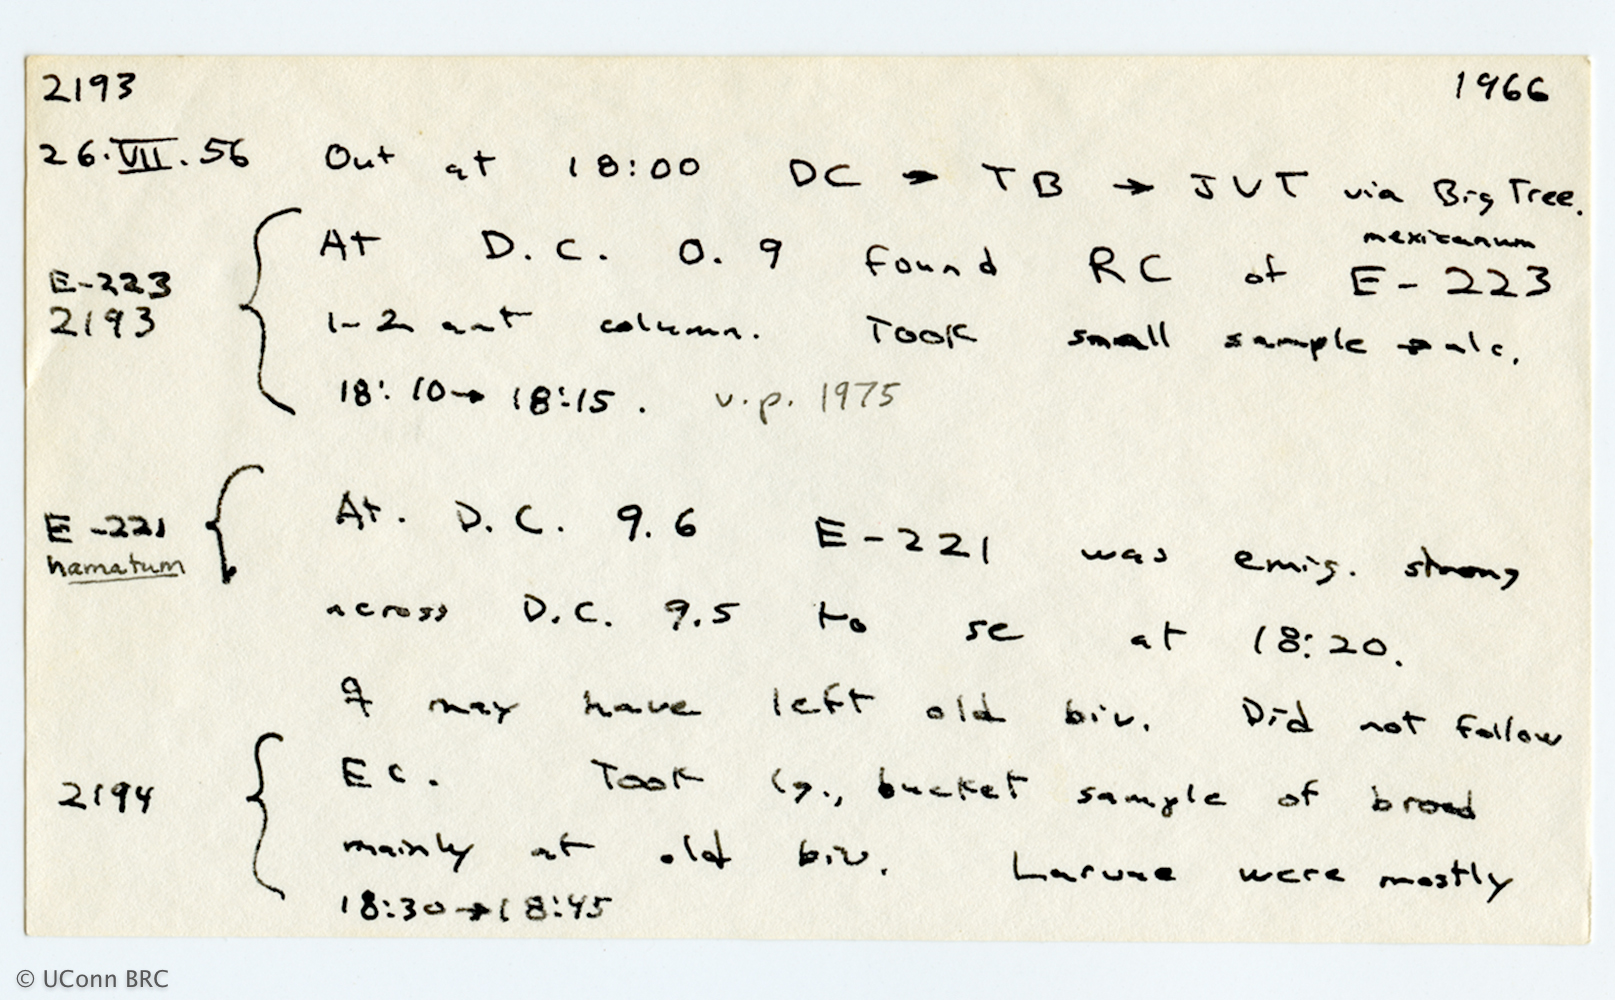 2193 1966
26.VII.56 Out at 18:00 DC → TB → JVT via Big Tree.
mexicanum
E-223 At D.C. 0.9 found RC of E-223
2193 1-2 ant column. Took small sample → alc.
18:10 → 18:15. v.p. 1975
E-221 At. D.C. 9.6 E-221 was emig. strong
hamatum
across D.C. 9.5 to se at 18:20.
♀ may have left old biv. Did not follow
2194 EC. Took lg., bucket sample of brood
mainly at old biv. Larvae were mostly
18:30 → 18:45
© UConn BRC